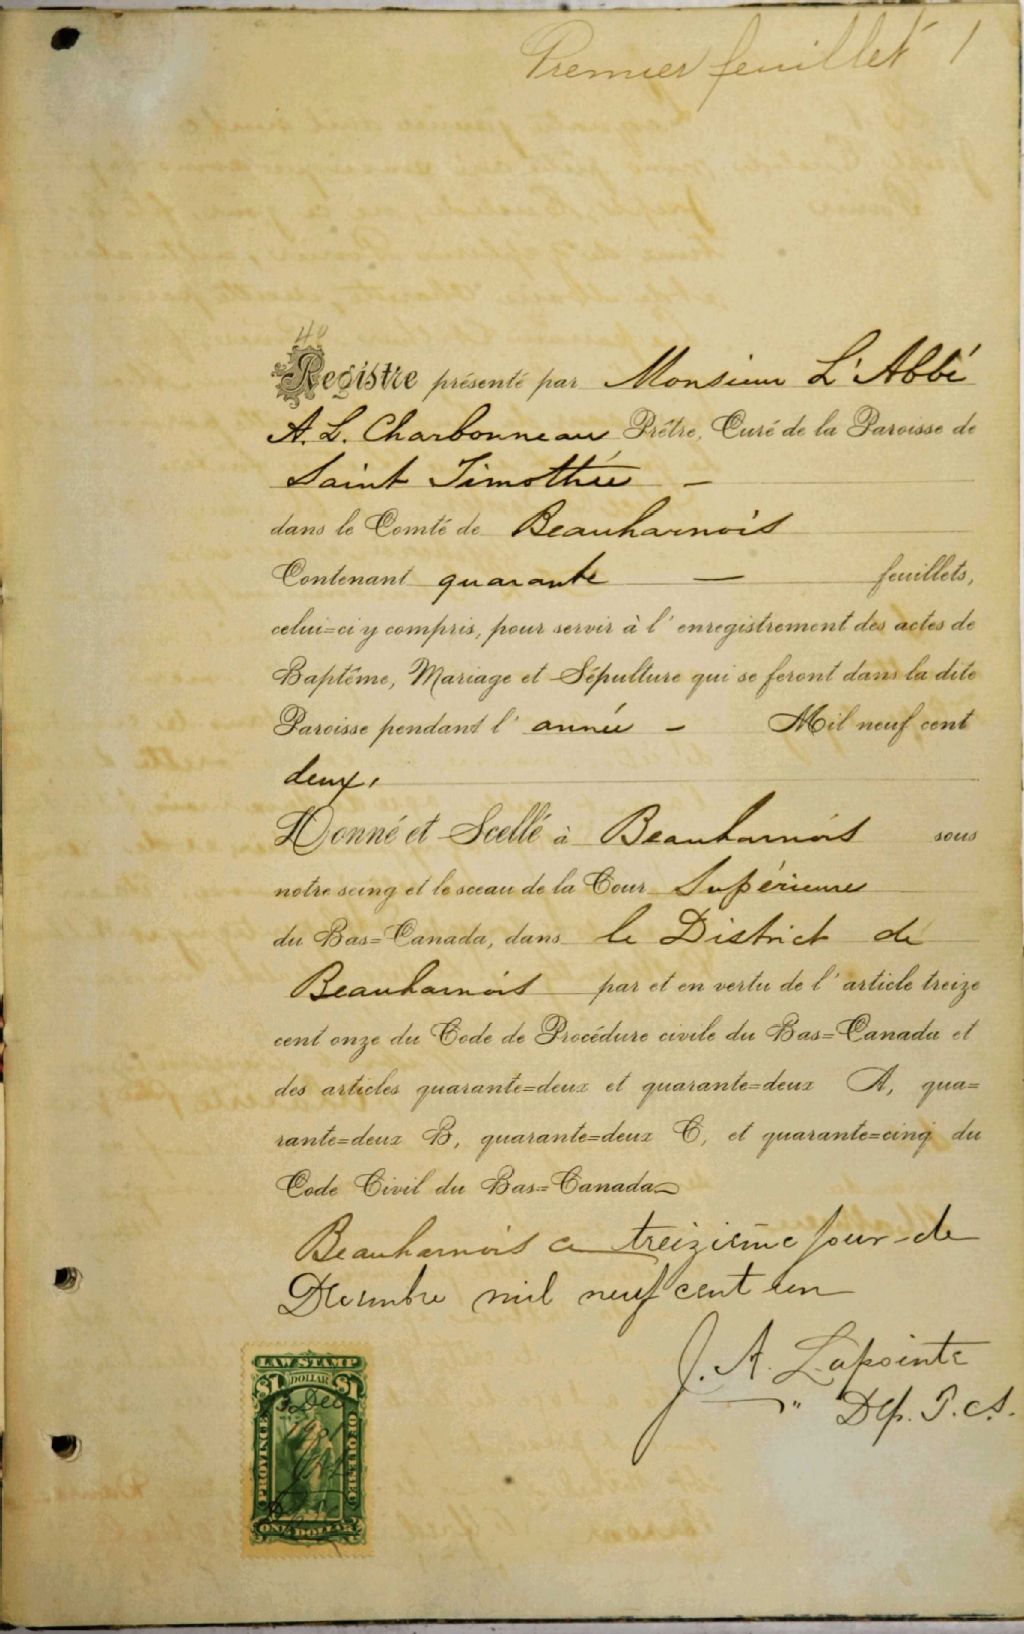 Premier feuillet 1
40
Registre présenté par Monsieur L'Abbé
A. L. Charbonneau Prêtre, Curé de la Paroisse de
Saint Timothée -
dans le Comté de Beauharnois
Contenant quarante — feuillets,
celui=ci y compris, pour servir à l'enregistrement des actes de
Baptême, Mariage et Sépulture qui se feront dans la dite
Paroisse pendant l'année - Mil neuf cent
deux,
Donné et Scellé à Beauharnois sous
notre seing et le sceau de la Cour Supérieure
du Bas=Canada, dans le District de
Beauharnois par et en vertu de l'article treize
cent onze du Code de Procédure civile du Bas=Canada et
des articles quarante=deux et quarante=deux A, qua=
rante=deux B, quarante=deux C, et quarante=cinq du
Code Civil du Bas=Canada
Beauharnois ce treizième jour de
Décembre mil neuf cent un
J. A. Lapointe
" Dep. P.C.S.
LAW STAMP
$1 DOLLAR $1
13 Dec
PROVINCE OF QUEBEC
ONE DOLLAR